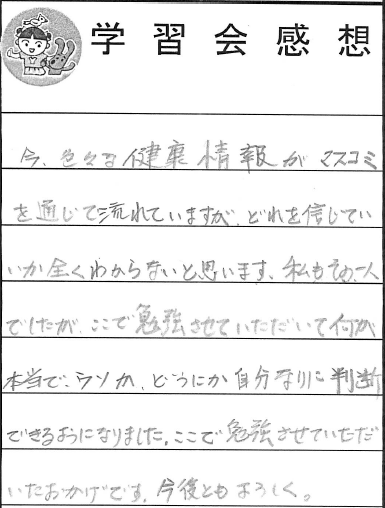 学習会感想
今、色々な健康情報がマスコミ
を通じて流れていますが、どれを信じてい
いか全くわからないと思います、私もその一人
でしたが、ここで勉強させていただいて何が
本当で、ウソか、どうにか自分なりに判断
できるようになりました。ここで勉強させていただ
いたおかげです。今後ともよろしく。